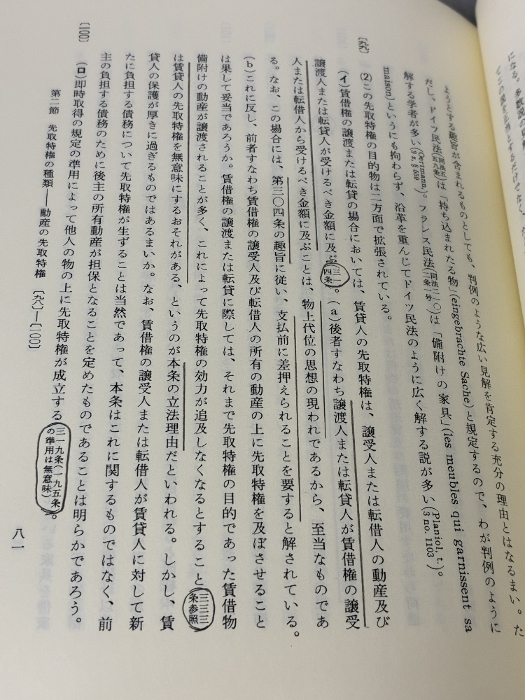 ようとする趣旨が含まれるものとしても、判例のような広い見解を肯定する充分の理由とはなるまい。た
だし、ドイツ民法は「持ち込まれたる物」(eingebrachte Sache)と規定するので、わが判例のように
解する学者が多い(Oertmann,)。フランス民法は「備附けの家具」(les meubles qui garnissent sa
maison)というにも拘わらず、沿革を重んじてドイツ民法のように広く解する説が多い(Planiol, t., 3 no. 1103)。
(2)この先取特権の目的物は二方面で拡張されている。
(イ)賃借権の譲渡または転貸の場合においては、賃貸人の先取特権は、譲受人または転借人の動産及び
譲渡人または転貸人が受けるべき金額に及ぶ(三一四条)。(a)後者すなわち譲渡人または転貸人が賃借権の譲受
人または転借人から受けるべき金額に及ぶことは、物上代位の思想の現われであるから、至当なものであ
る。なお、この場合には、第三〇四条の趣旨に従い、支払前に差押えられることを要すると解されている。
(b)これに反し、前者すなわち賃借権の譲受人及び転借人の所有の動産の上に先取特権を及ぼさせること
は果して妥当であろうか。賃借権の譲渡または転貸に際しては、それまで先取特権の目的であった賃借物
備附けの動産が譲渡されることが多く、これによって先取特権の効力が追及しなくなるとすること(三三三条参照)
は賃貸人の先取特権を無意味にするおそれがある、というのが本条の立法理由だといわれる。しかし、賃
貸人の保護が厚きに過ぎるものではあるまいか。なお、賃借権の譲受人または転借人が賃貸人に対して新
たに負担する債務について先取特権が生ずることは当然であって、本条はこれに関するものではなく、前
主の負担する債務のために後主の所有動産が担保となることを定めたものであることは明らかであろう。
〔100〕
(ロ)即時取得の規定の準用によって他人の物の上に先取特権が成立する(三一九条(一九五条の準用は無意味))。
第二節 先取特権の種類——動産の先取特権 〔九八〕—〔一〇〇〕
八一